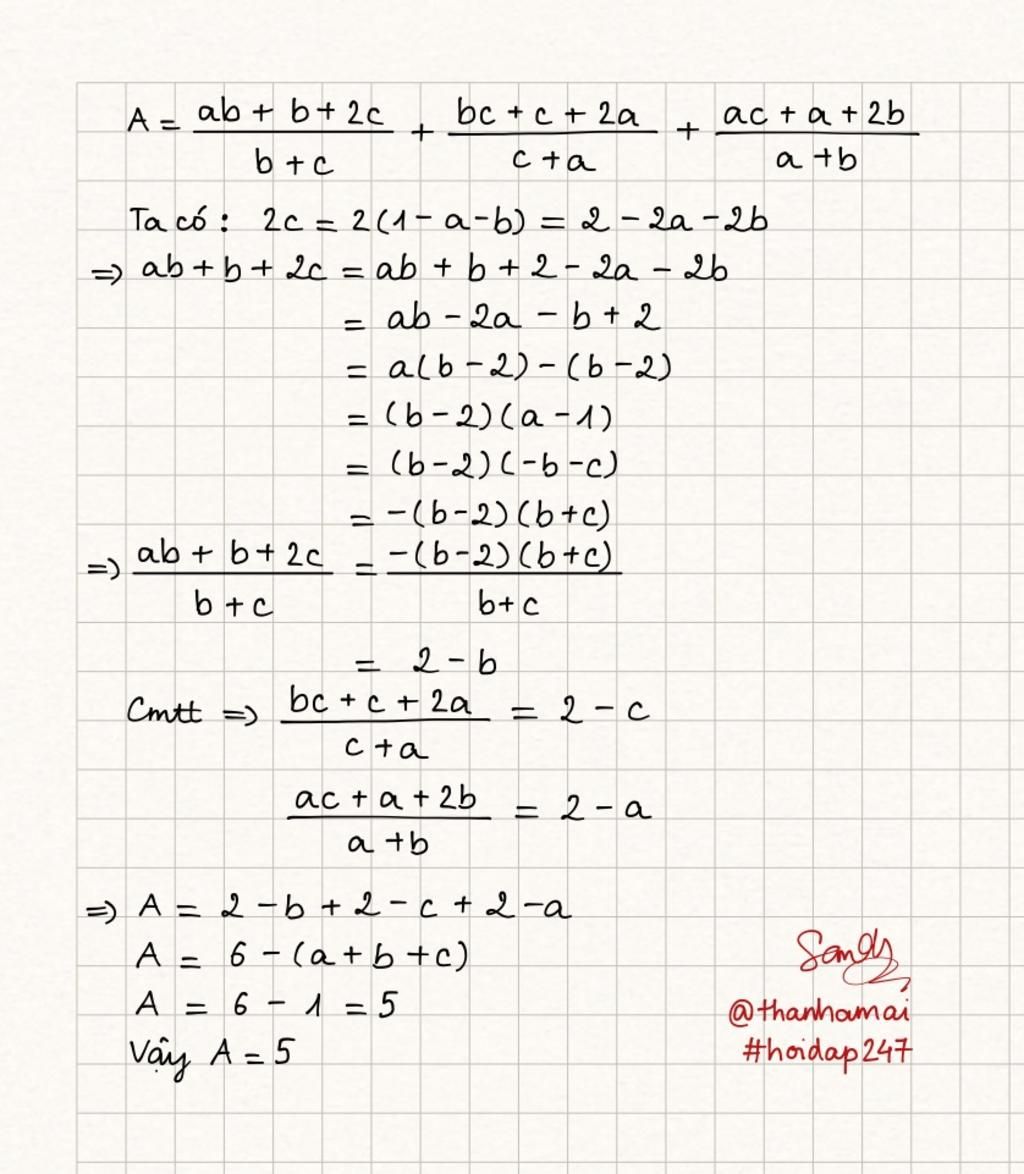 A = (ab + b + 2c)/(b + c) + (bc + c + 2a)/(c + a) + (ac + a + 2b)/(a + b)
Ta có : 2c = 2(1 - a - b) = 2 - 2a - 2b
=> ab + b + 2c = ab + b + 2 - 2a - 2b
= ab - 2a - b + 2
= a(b - 2) - (b - 2)
= (b - 2)(a - 1)
= (b - 2)(-b - c)
= -(b - 2)(b + c)
=> (ab + b + 2c)/(b + c) = -(b - 2)(b + c)/(b + c)
= 2 - b
Cmtt => (bc + c + 2a)/(c + a) = 2 - c
(ac + a + 2b)/(a + b) = 2 - a
=> A = 2 - b + 2 - c + 2 - a
A = 6 - (a + b + c)
A = 6 - 1 = 5
Vậy A = 5
@thanhamai
#hoidap247